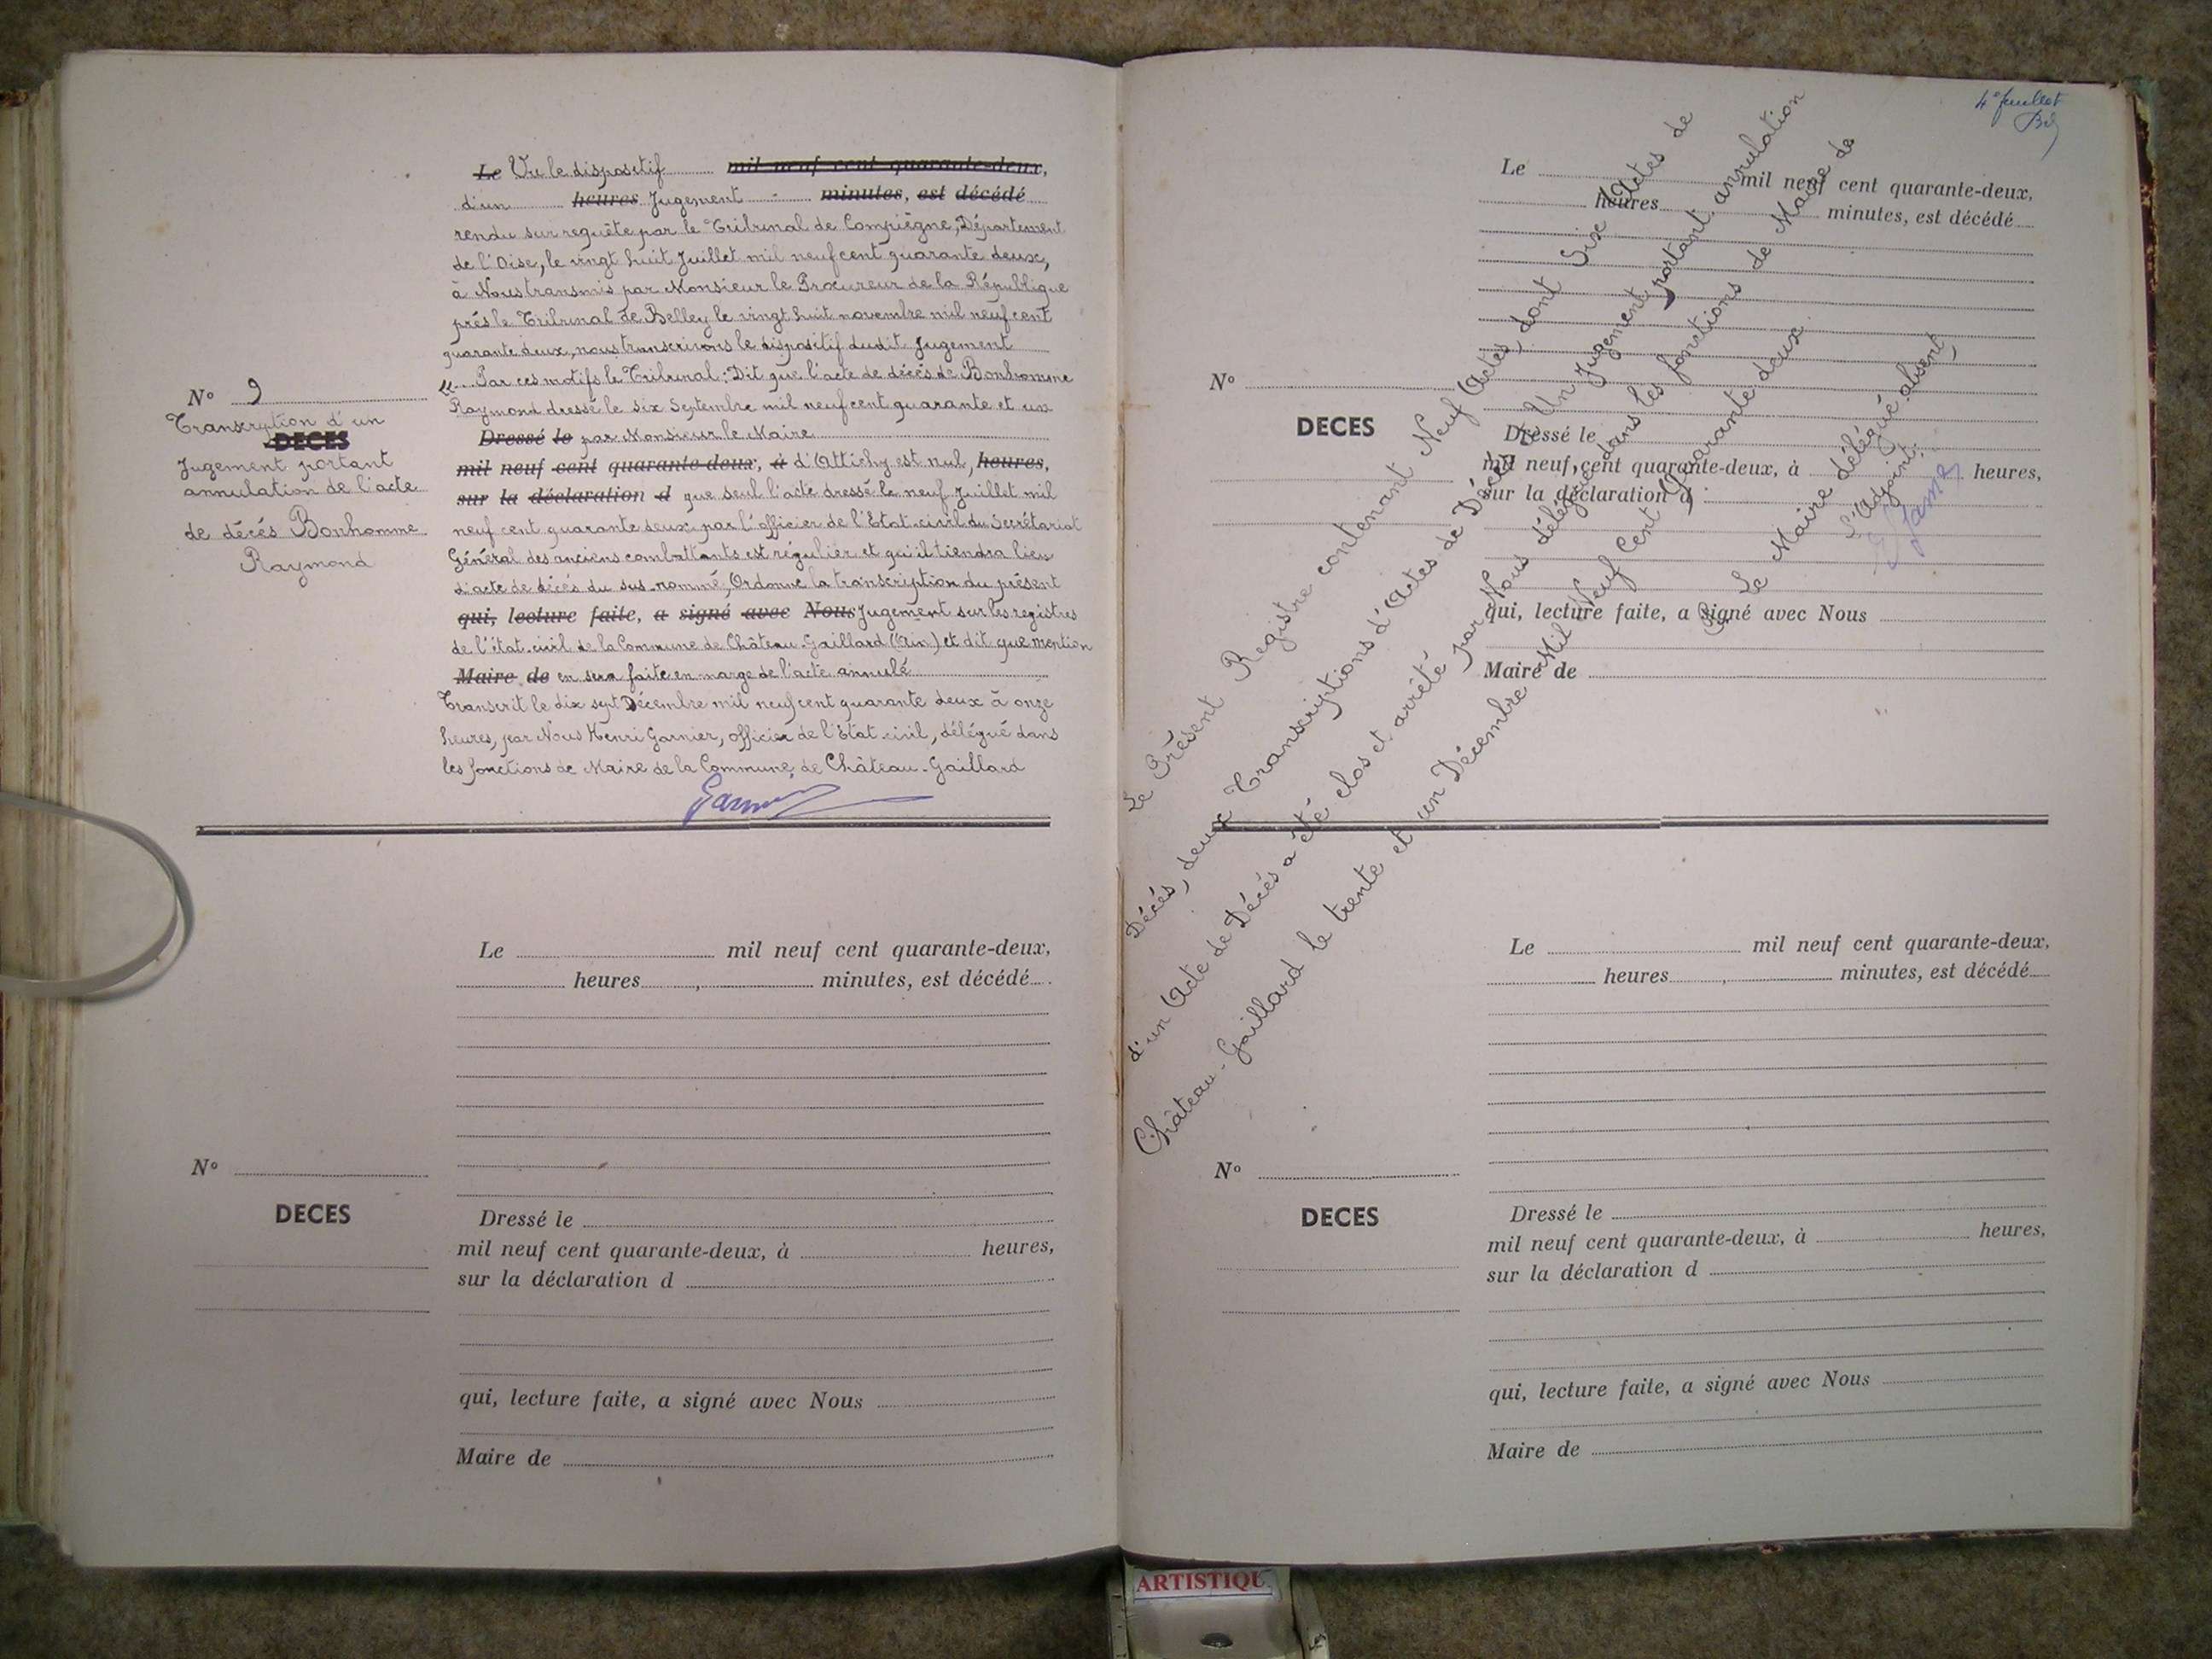 Le Vu le dispositif mil neuf cent quarante-deux,
d'un heures Jugement minutes, est décédé
rendu sur requête par le Tribunal de Compiègne, Département
de l'Oise, le vingt huit Juillet mil neuf cent quarante deux,
à Nous transmis par Monsieur le Procureur de la République
près le Tribunal de Belley le vingt huit novembre mil neuf cent
quarante deux, nous transcrivons le dispositif dudit Jugement
"... Par ces motifs le Tribunal : Dit que l'acte de décès de Bonhomme
Raymond dressé le six Septembre mil neuf cent quarante et un
Dressé le par Monsieur le Maire
mil neuf cent quarante-deux, à d'Attichy est nul, heures,
sur la déclaration d que seul l'acte dressé le neuf Juillet mil
neuf cent quarante deux par l'officier de l'Etat-civil du Secrétariat
Général des anciens combattants est régulier et qu'il tiendra lieu
d'acte de décés du sus-nommé, Ordonne la transcription du présent
qui, lecture faite, a signé avec Nous Jugement sur les registres
de l'état-civil de la Commune de Château-Gaillard (Ain) et dit que mention
Maire de en sera faite en marge de l'acte annulé
Transcrit le dix sept Décembre mil neuf cent quarante deux à onze
heures, par Nous Henri Garnier, officier de l'Etat-civil, délégué dans
les fonctions de Maire de la Commune, de Château-Gaillard
Garnier
N° 9
Transcription d'un
DECES
Jugement portant
annulation de l'acte
de décés Bonhomme
Raymond
Le mil neuf cent quarante-deux,
heures minutes, est décédé
N°
DECES
Dressé le
mil neuf cent quarante-deux, à heures,
sur la déclaration d
qui, lecture faite, a signé avec Nous
Maire de
4e feuillet
Le mil neuf cent quarante-deux,
heures minutes, est décédé
N°
DECES
Dressé le
mil neuf cent quarante-deux, à heures,
sur la déclaration d
qui, lecture faite, a signé avec Nous
Maire de
Le Présent Registre contenant Neuf Actes, dont Six Actes de
Décés, deux Transcriptions d'Actes de Décés et Un Jugement portant annulation
d'un Acte de Décés a été clos et arrêté par Nous délégué dans les fonctions de Maire de
Château-Gaillard le trente et un Décembre Mil Neuf Cent Quarante deux.
Le Maire délégué absent,
L'Adjoint.
Le mil neuf cent quarante-deux,
heures minutes, est décédé
N°
DECES
Dressé le
mil neuf cent quarante-deux, à heures,
sur la déclaration d
qui, lecture faite, a signé avec Nous
Maire de
ARTISTIQU